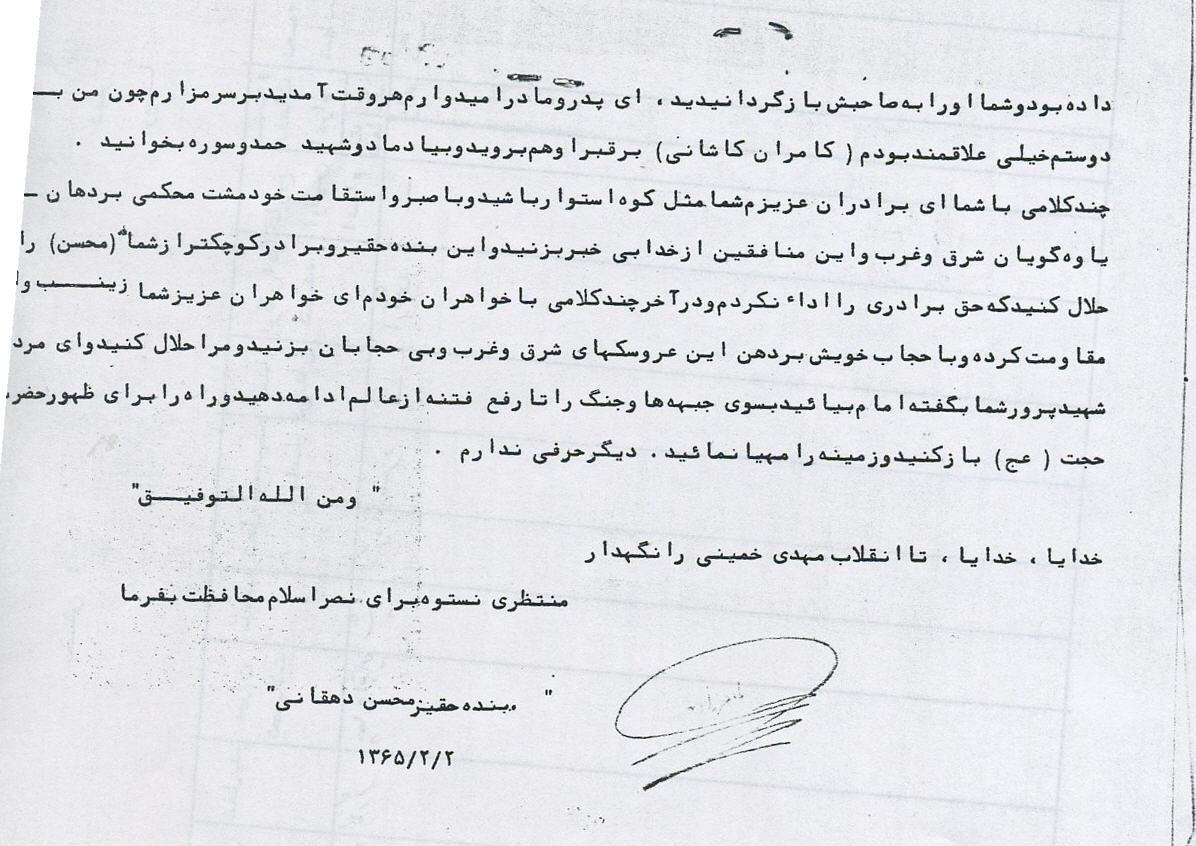 داده بود و شما او را به صاحبش بازگردانیدید، ای پدر و مادر امیدوارم هر وقت آمدید بر سر مزارم چون من بـ
دوستم خیلی علاقمند بودم (کامران کاشانی) بر قبر او هم بروید و بیاد ما دو شهید حمد و سوره بخوانید .
چند کلامی با شما ای برادران عزیزم شما مثل کوه استوار باشید و با صبر و استقامت خود مشت محکمی بر دهان ـ
یاوه گویان شرق و غرب و این منافقین از خدا بی خبر بزنید و این بنده حقیر و برادر کوچکتر از شما (محسن) را
حلال کنید که حق برادری را اداء نکردم و در آخر چند کلامی با خواهران خودم ای خواهران عزیز شما زینـــب وا
مقاومت کرده و با حجاب خویش بر دهن این عروسکهای شرق و غرب و بی حجابان بزنید و مرا حلال کنید و ای مرد
شهید پرور شما بگفته امام بیائید بسوی جبهه ها و جنگ را تا رفع فتنه از عالم ادامه دهید و راه را برای ظهور حضر
حجت (عج) باز کنید و زمینه را مهیا نمائید . دیگر حرفی ندارم .
" ومن الله التوفیـــق"
خدایا ، خدایا ، تا انقلاب مهدی خمینی را نگهدار
منتظری نستوه برای نصر اسلام محافظت بفرما
" بنده حقیز محسن دهقانی"
۱۳۶۵/۲/۲